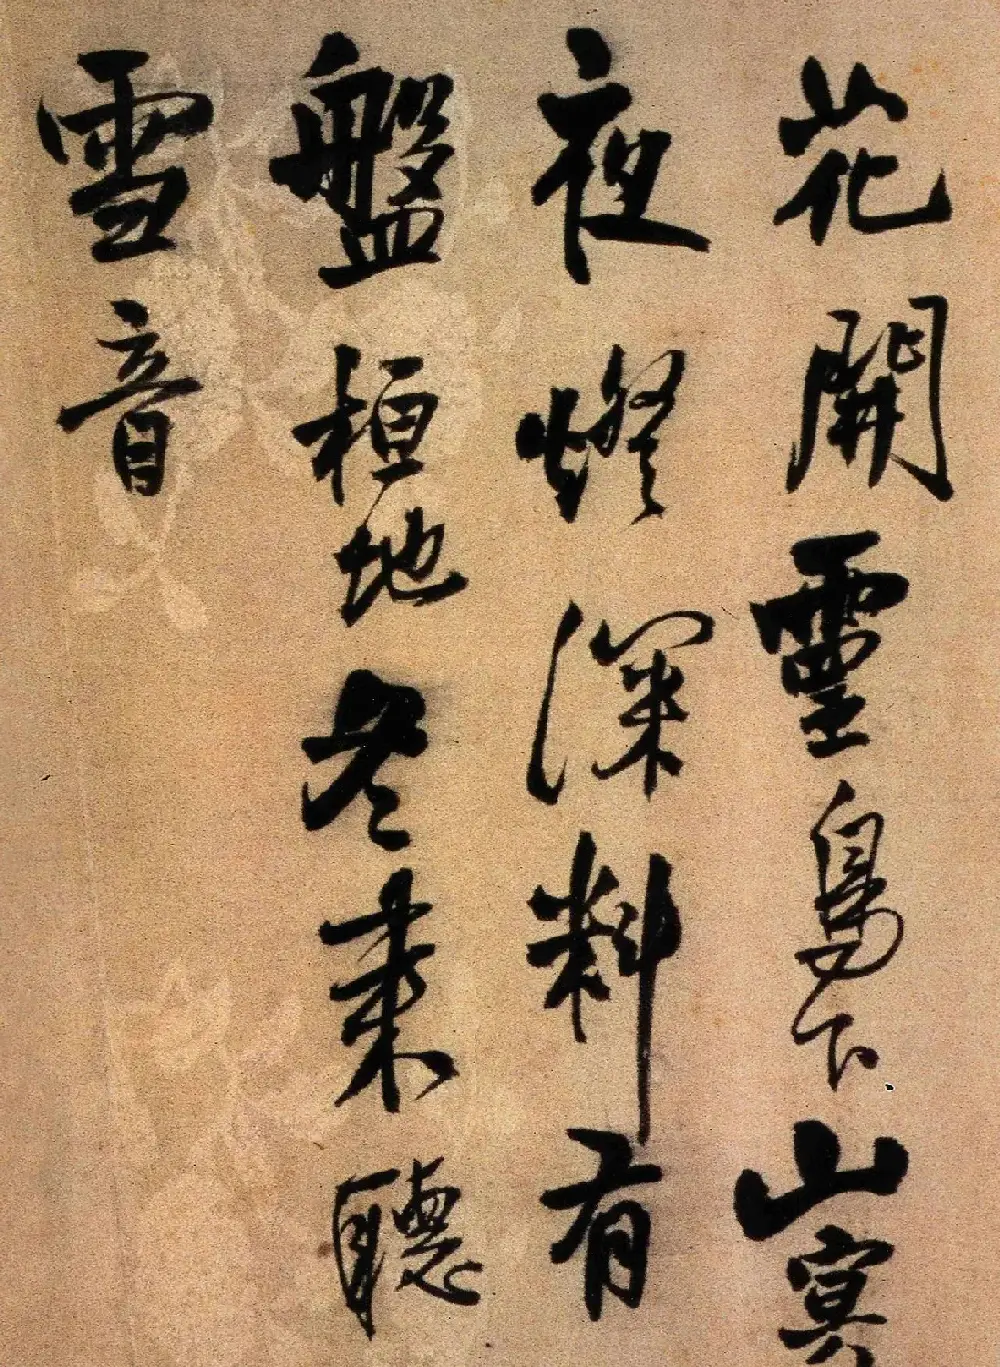 花開靈鳥下山冥
夜燈深料有
盤桓地冬來聽
雪音